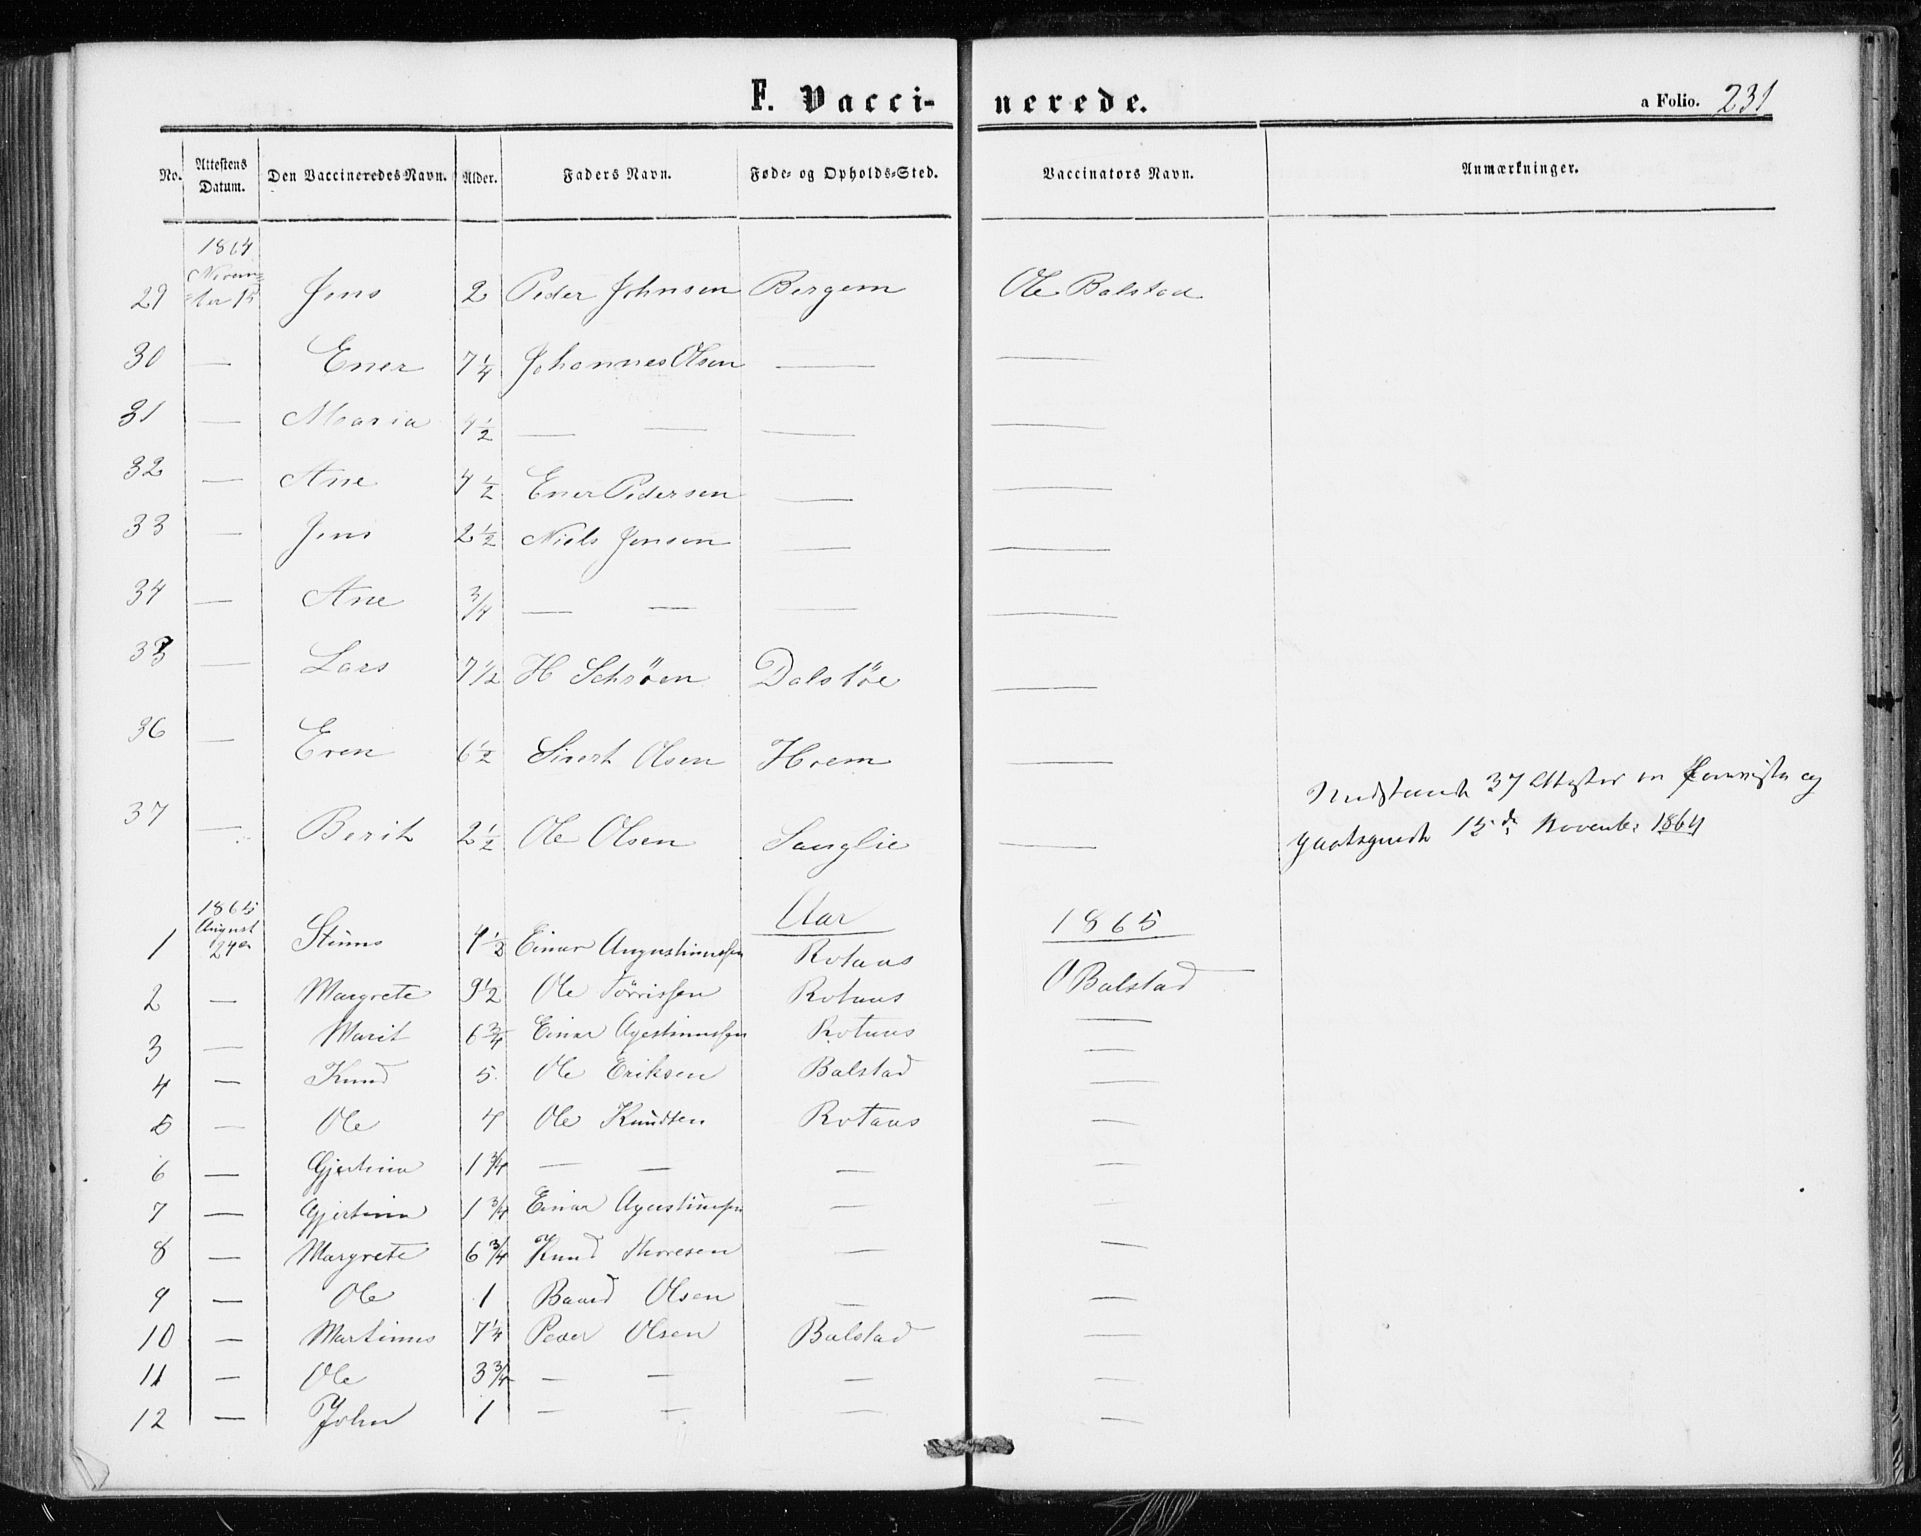 F. Vaccinerede.
a Folio. 231
No. Attestens Datum. Den Vaccineredes Navn. Alder. Faders Navn. Føde- og Opholds-Sted. Vaccinators Navn. Anmærkninger.
1864
29 November 15 Jens 2 Peder Johnsen Bergem Ole Balstad
30 — Ener 7 1/4 Johannes Olsen — —
31 — Maaria 4 1/2 — — — —
32 — Ane 4 1/2 Ener Pedersen — —
33 — Jens 2 1/2 Niels Jensen — —
34 — Ane 3/4 — — — —
35 — Lars 7 1/2 H Schrøen Dalsløe —
36 — Eren 6 1/2 Sivert Olsen Hoem —
37 — Berit 2 1/2 Ole Olsen Sanglie —
37 Attester
15de November 1864
Aar 1865
1865 August
1 24de 4 1/2 Einar Augustinussen Rotaas O Balstad
2 — Margrete 9 1/2 Ole Tørrissen Rotaas —
3 — Marit 6 3/4 Einar Agestinussen Rotaas —
4 — Knud 5 Ole Eriksen Balstad —
5 — Ole 4 Ole Knudten Rotaas —
6 — Gjertina 1 3/4 — — — —
7 — Gjertina 1 3/4 Einar Agustinussen — —
8 — Margrete 6 3/4 Knud Thoresen — —
9 — Ole 1 Baard Olsen — —
10 — Martinus 7 1/4 Peder Olsen Balstad —
11 — Ole 3 3/4 — — — —
12 — John 1 — — — —